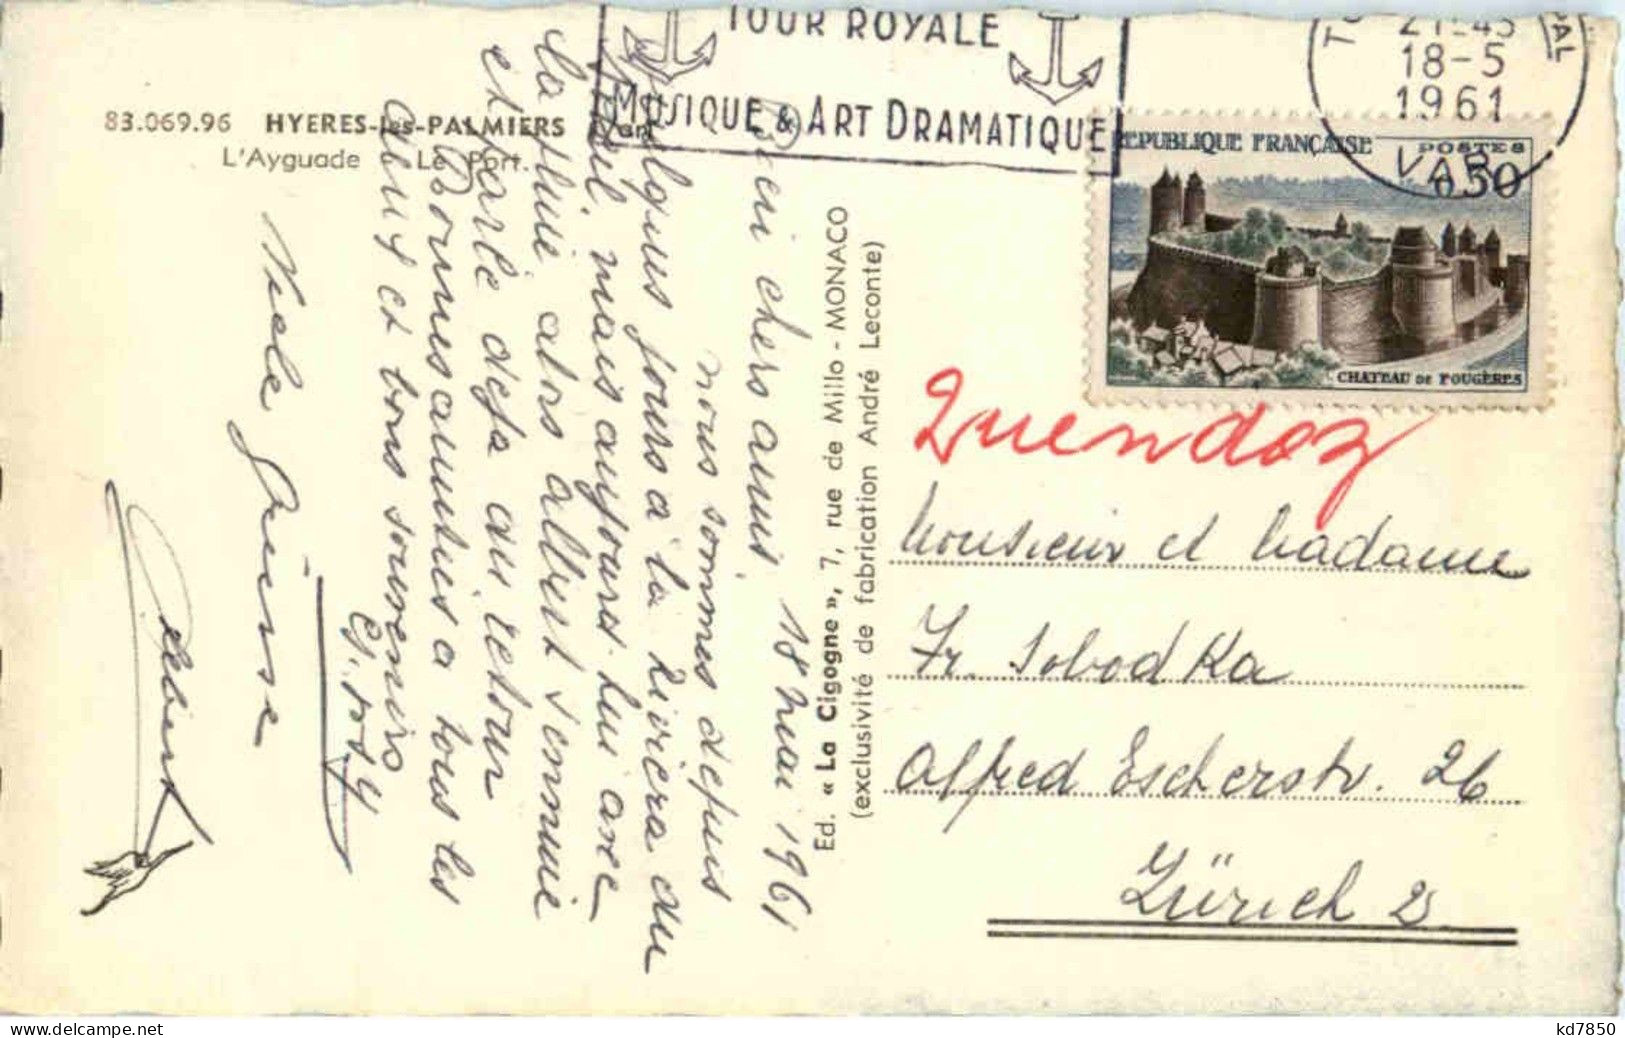 TOUR ROYALE
MUSIQUE & ART DRAMATIQUE
21-45
18-5
1961
VAR
83.069.96 HYERES-les-PALMIERS (Var)
L'Ayguade - Le Port.
REPUBLIQUE FRANÇAISE POSTES
0,50
CHATEAU DE FOUGÈRES
18 mai 1961
chers amis,
nous sommes depuis
quelques jours à la Riviera du
mais aujourd'hui avec
la pluie alors Albert s'ennuie
et parle déjà du retour
Bonnes amitiés à tous les
deux et bons souvenirs
Viele Grüsse
Albert
Ed. « La Cigogne », 7, rue de Millo - MONACO
(exclusivité de fabrication André Leconte)
Quendoz
Monsieur et Madame
Fr. Sobodka
Alfred Escherstr. 26
Zürich 2
kd7850